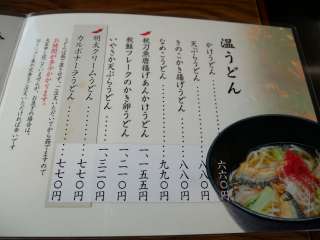 温うどん
かけうどん
六六〇円
天ぷらうどん
八八〇円
きのこかき揚げうどん
八八〇円
なめこうどん
九九〇円
秋刀魚唐揚げあんかけうどん
一、一五五円
秋鮭フレークのかき卵うどん
一、二一〇円
いやさか天ぷらうどん
一、三二〇円
明太クリームうどん
七七〇円
カルボナーラうどん
七七〇円